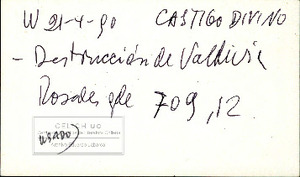 W 21-4-90 CASTIGO DIVINO
- Destrucción de Valdivia
Rosales 709, 12.
USADO